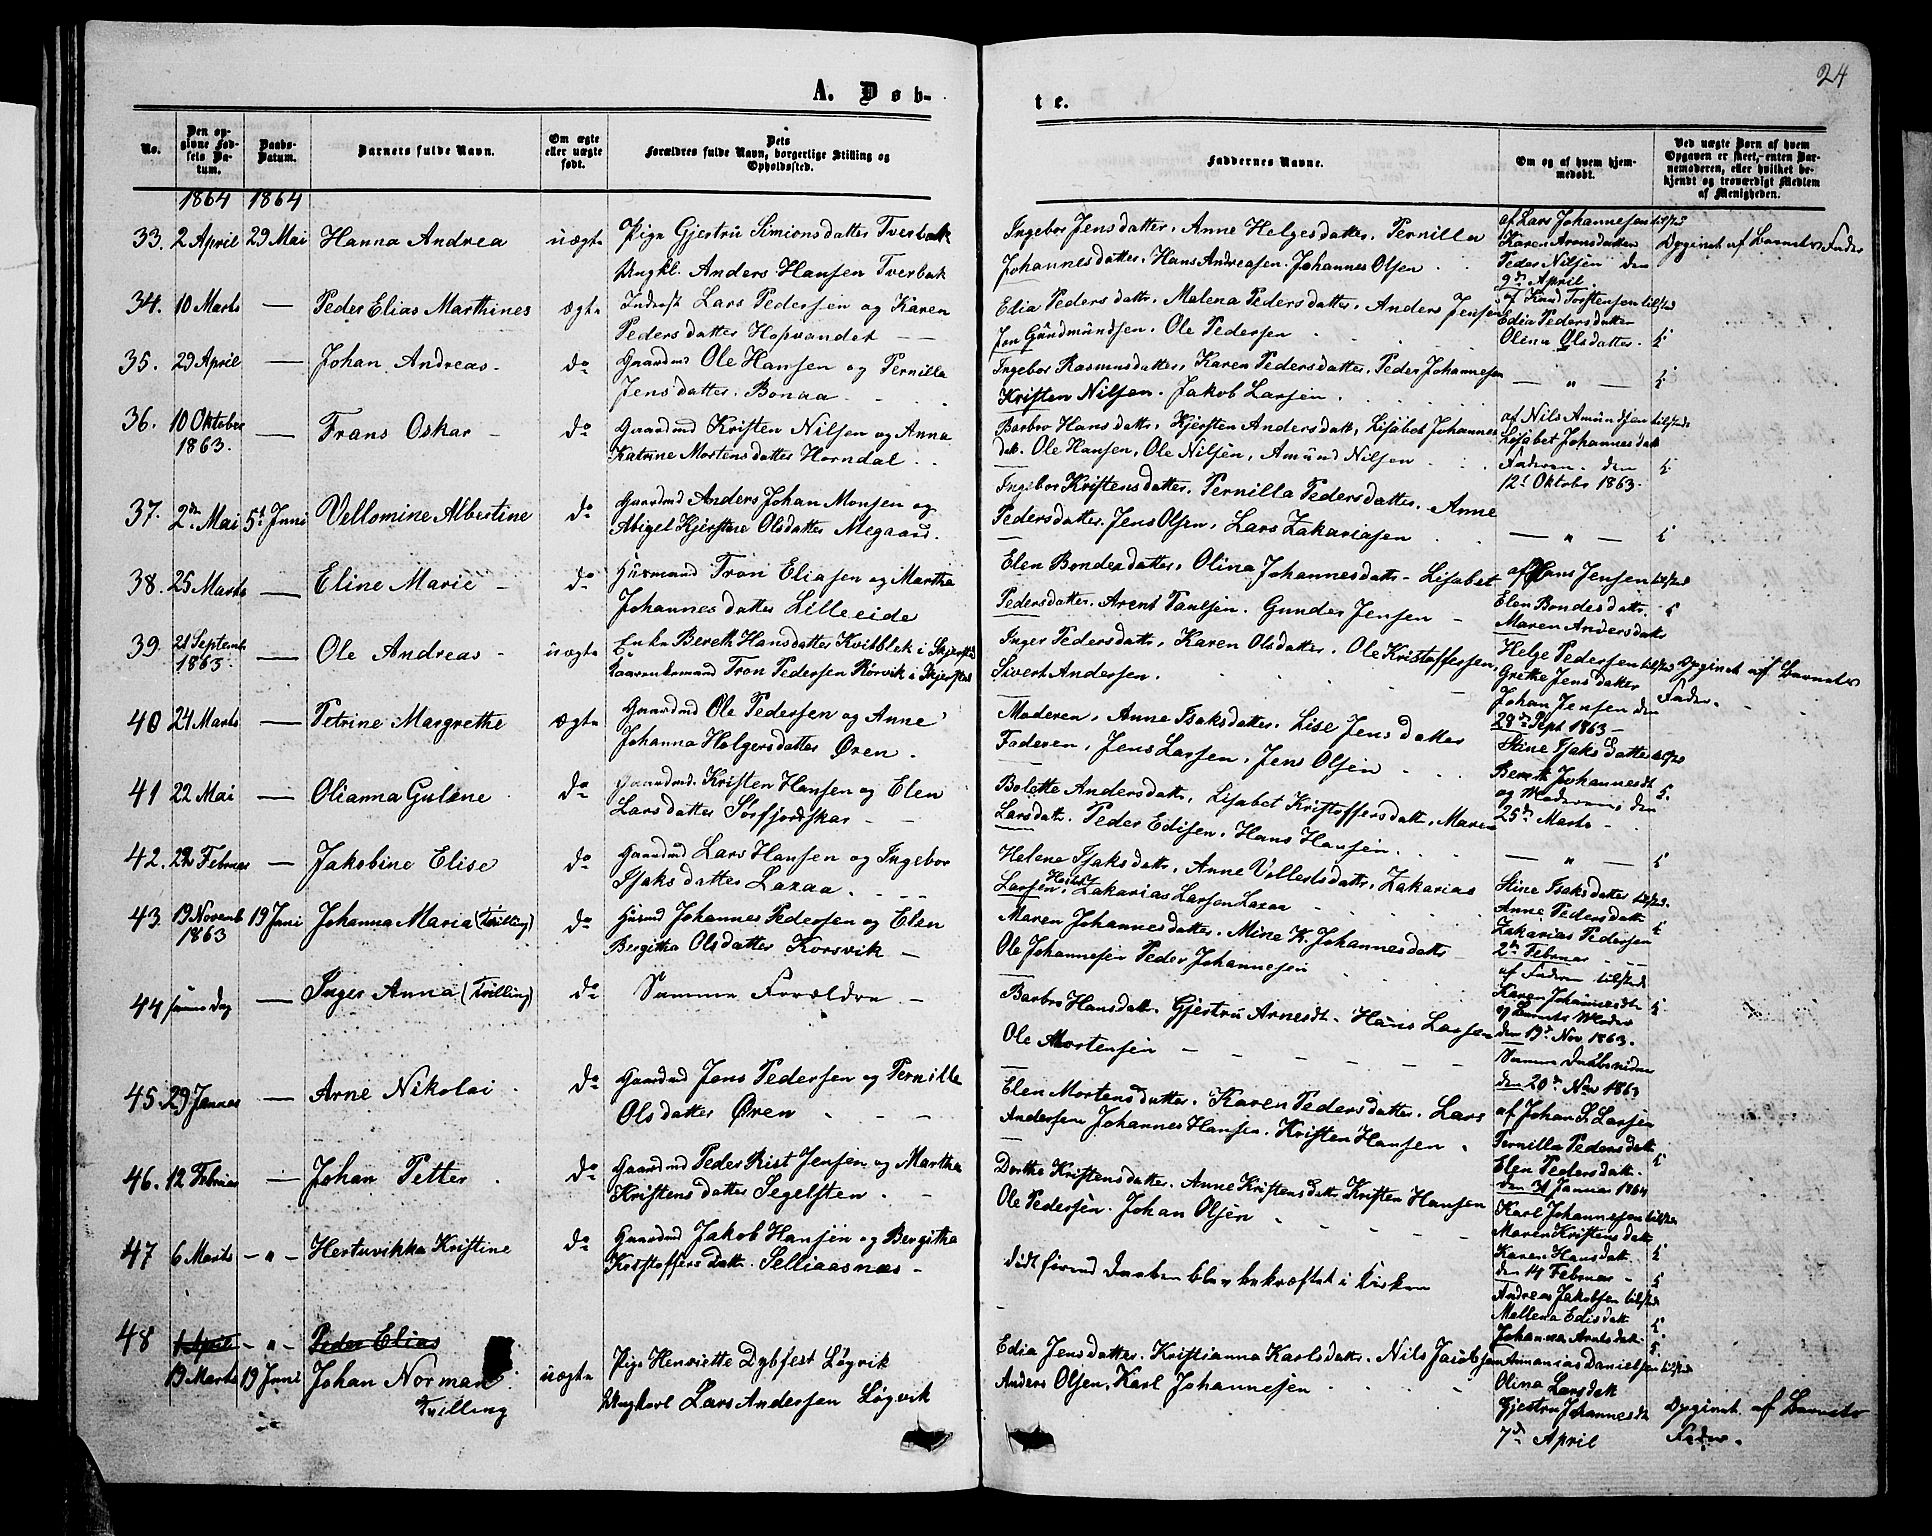 24
A. Døb-
te.
No.
Den op-
givne Fød-
sels Da-
tum.
Daabs-
Datum.
Barnets fulde Navn.
Om ægte
eller uægte
født.
Dets
Forældres fulde Navn, borgerlige Stilling og
Opholdssted.
Faddernes Navne.
Om og af hvem hjem-
medøbt.
Ved uægte Børn af hvem
Opgaven er skeet, enten Bar-
nemoderen, eller hvilket be-
kjendt og troværdigt Medlem
af Menigheden.
1864 1864
33. 2 April 29 Mai Hanna Andrea uægte Pige Gjestru Simionsdatter Tverbak
Ungkl. Anders Hansen Tverbak
Ingebor Jensdatter. Anne Helgesdatter. Pernilla
Johannesdatter. Hans Andreasen. Johannes Olsen
af Lars Johannesen
Karen Aronsdatter
Peder Nilsen den
9de April.
Opgivet af Barnets Fader
34. 10 Marts — Peder Elias Marthines ægte Inderst Lars Pedersen og Karen
Pedersdatter Hopvandet
Edia Pedersdatter. Malena Pedersdatter. Anders Jensen
Jon Gundmundsen. Ole Pedersen
af Knud Torstensen
Edia Pedersdatter
Olena Olsdatter.
35. 29 April — Johan Andreas do Gaardmd Ole Hansen og Pernilla
Jensdatter. Bonaa
Ingebor Rasmusdatter. Karen Pedersdatter. Peder Johannesen
Kristen Nilsen. Jakob Larsen.
— " —
36. 10 Oktober
1863. — Frans Oskar do Gaardmd Kristen Nilsen og Anna
Katrine Mortensdatter Horndal
Barbro Hansdatt. Kjersten Andersdatt. Lisabet Johannes
datt. Ole Hansen, Ole Nilsen, Amund Nilsen
af Nils Amundsen
Lisabet Johannesdatt
Faderen. den
12t Oktober 1863.
37. 2den Mai 5t Juni Vellomine Albertine do Gaardmd Anders Johan Monsen og
Abigel Kjerstine Olsdatter Megaard.
Ingebor Kristensdatter. Pernilla Pedersdatter. Anne
Pedersdatter. Jens Olsen. Lars Zakariasen
— " —
38. 25 Marts — Eline Marie do Husmand Tron Eliasen og Martha
Johannesdatter Lilleeide
Elen Bondesdatter. Olina Johannesdatt. Lisabet
Pedersdatter. Arent Paulsen. Gunder Jensen
af Hans Jensen
Elen Bondesdatt.
Maren Andersdatt
39. 21 Septemb.
1863. — Ole Andreas uægte Enke Bereth Hansdatter Kvitblek i Skjerstad
Tron Pedersen Rørvik i Skjerstad
Inger Pedersdatter. Karen Olsdatter. Ole Kristoffersen,
Sivert Andersen.
Helge Pedersen
Grethe Jensdatter
Johan Jensen den
28de Sept 1863
Opgivet af Barnets
Fader.
40 24 Marts — Petrine Margrethe ægte Gaardmd Ole Pedersen og Anne
Johanna Holgersdatter Øren.
Moderen, Anne Isaksdatter. Lise Jensdatter
Faderen, Jens Larsen, Jens Olsen
Stine Isaksdatter
Bereth Johannesdt
og Moderen den
25de Marts
41 22 Mai — Olianna Gulene do Gaardmd. Kristen Hansen og Elen
Larsdatter Sørfjordskar
Bolette Andersdatt. Lisabet Kristoffersdatt. Maren
Larsdatt. Peder Edisen. Hans Hansen.
— " —
42. 22 Februar — Jakobine Elise do Gaardmd Lars Hansen og Ingebor
Isaksdatter Laxaa.
Helene Isaksdatt. Anne Vollertsdatt. Zakarias
Larsen. Zakarias Larsen Laxaa
Stine Isaksdatter
Anne Pedersdatt
Zakarias Pedersen
2den Februar
43. 19 Novemb
1863 19 Juni Johanna Maria (Tvilling) do Husmd Johannes Pedersen og Elen
Bergitha Olsdatter Korsvik
Maren Johannesdatter. Mine K. Johannesdatt
Ole Johannesen Peder Johannesen
af Faderen tilsted
Karen Johannesdt
og Barnets Moder
den 19d Nov 1863.
44 samme Dag — Inger Anna (Tvilling) do Samme Forældre
Barbro Hansdatt. Gjestru Arnesdt. Hans Larsen
Ole Mortensen
Samme Daabsvidner
den 20de Nov 1863
45. 29 Januar — Arne Nikolai do Gaardmd Jens Pedersen og Pernille
Olsdatter Øren
Elen Mortensdatter. Karen Pedersdatter. Lars
Andersen Johannes Hansen. Kristen Hansen
af Johan L. Larsen
Pernilla Pedersdatt
Elen Pedersdatt.
den 31 Januar 1864
46. 12 Februar — Johan Petter do Gaardmd Peder Rist Jensen og Martha
Kristensdatter Segelsten.
Dorthe Kristensdatter. Anne Kristensdatt. Kristen Hansen
Ole Pedersen. Johan Olsen
Karl Johannesen
Maren Kristensdatt
Karen Hansdatt
den 14 Februar
47 6 Marts — " — Hertuvikka Kristine do Gaardmd Jakob Hansen og Bergitha
Kristoffersdatt. Selliaasnæs
død førend Daaben blev bekræftet i Kirken
Andreas Jakobsen tilsted
Mallena Edisdatt
Johanna Arntsdatt
48 1 April — " — Peder Elias
19 Marts 19 Juni Johan Norman
Tvilling
uægte Pige Henriette Dybfest Løgvik
Ungkarl Lars Andersen Løgvik
Edia Jensdatter. Kristianna Karlsdatt. Nils Jacobsen
Anders Olsen. Karl Johannesen
Annanias Danielsen tilsted
Olina Larsdatt
Gjestru Johannesdt
7d April
Opgivet af Barnets
Fader.